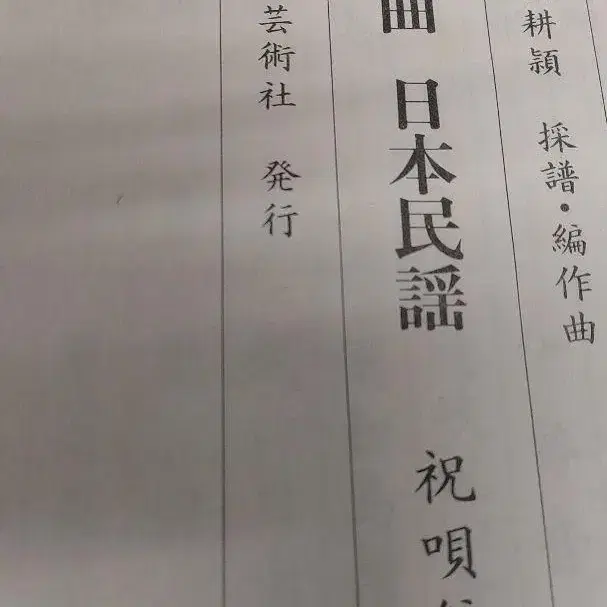 耕頴 採譜・編作曲
曲 日本民謡 祝唄
芸術社 発行